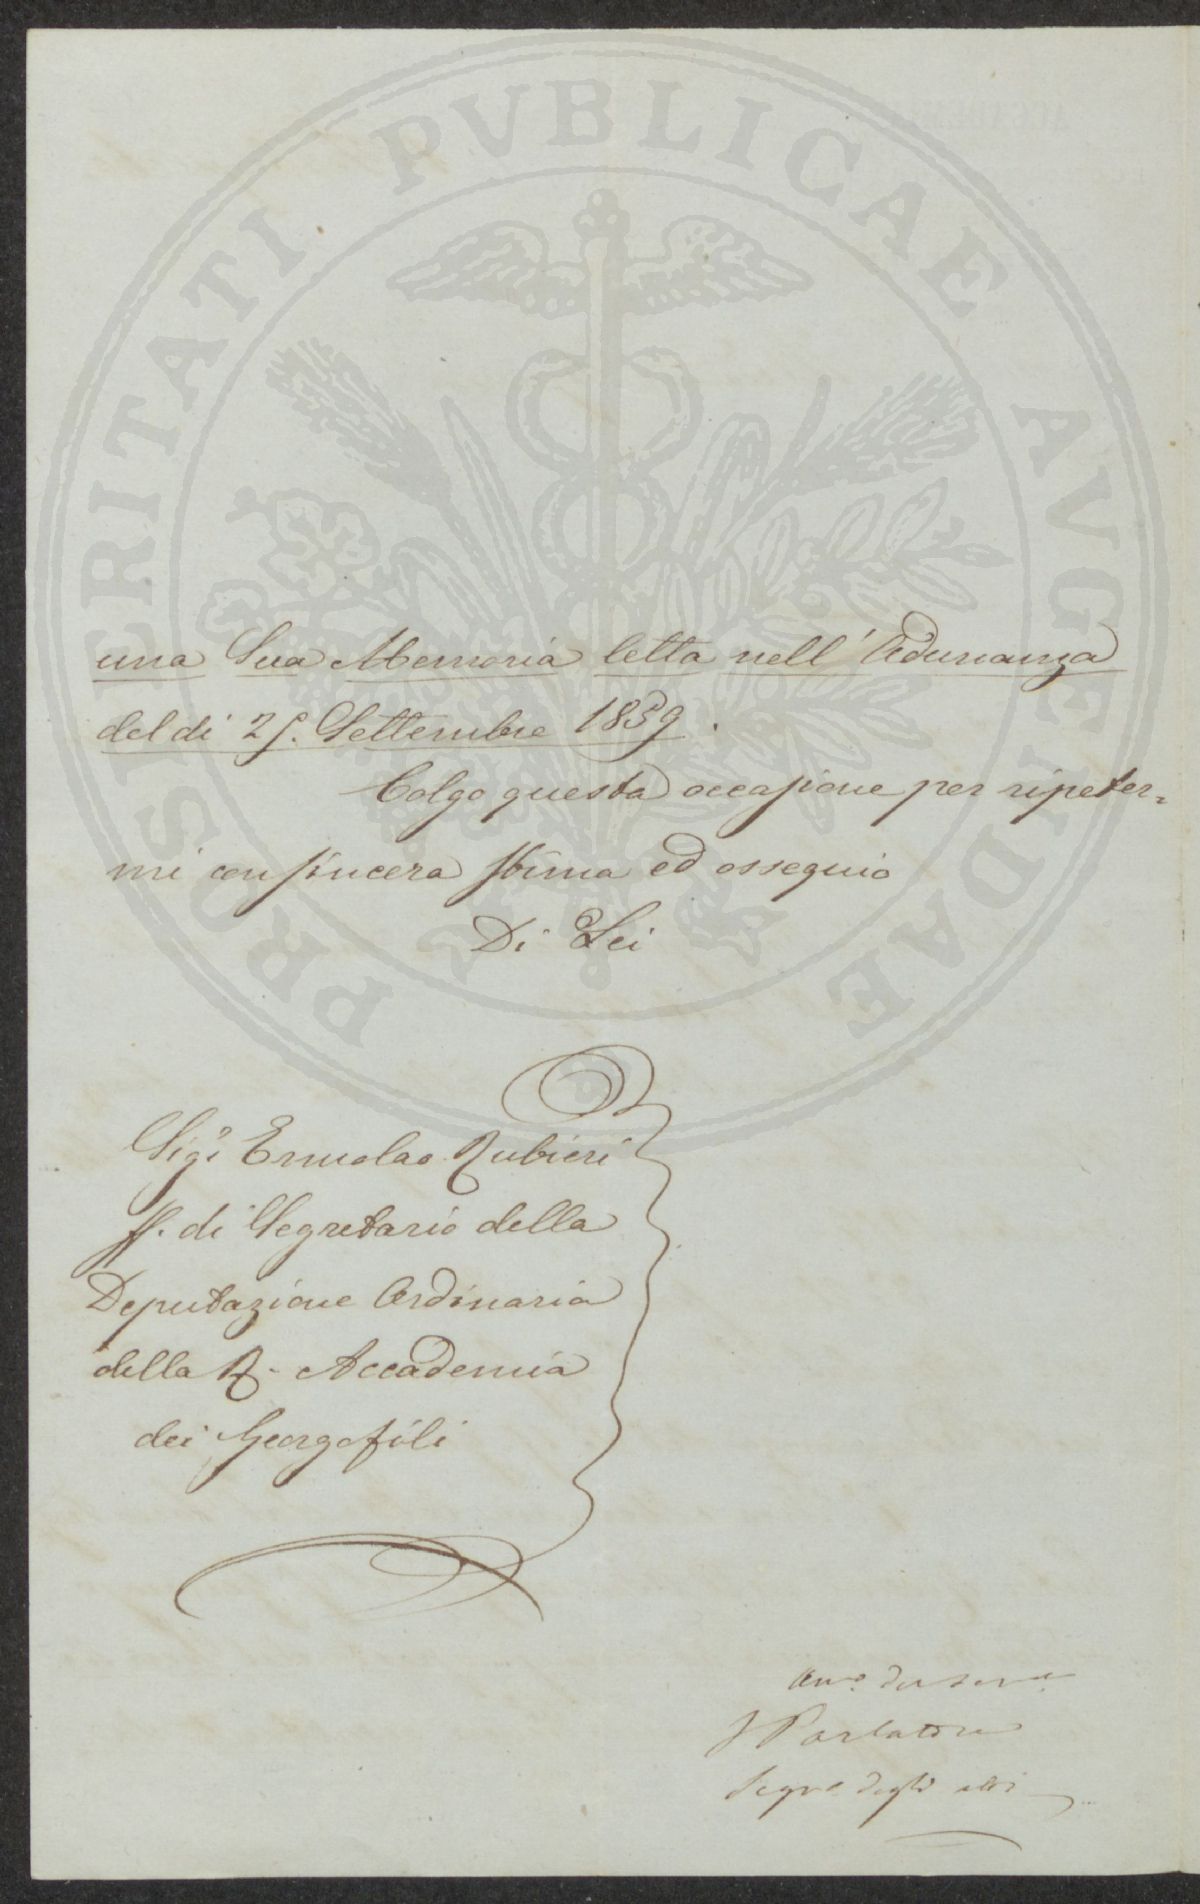 PROSPERITATI PVBLICAE AVGENDAE
una Sua Memoria letta nell'Adunanza
del dì 25. Settembre 1859.
Colgo questa occasione per ripeter=
mi con sincera stima ed ossequio
Di Lei
Sig.e Ermolao Rubieri
ff. di Segretario della
Deputazione Ordinaria
della R. Accademia
dei Georgofili
Parlatore
Segr. degli atti